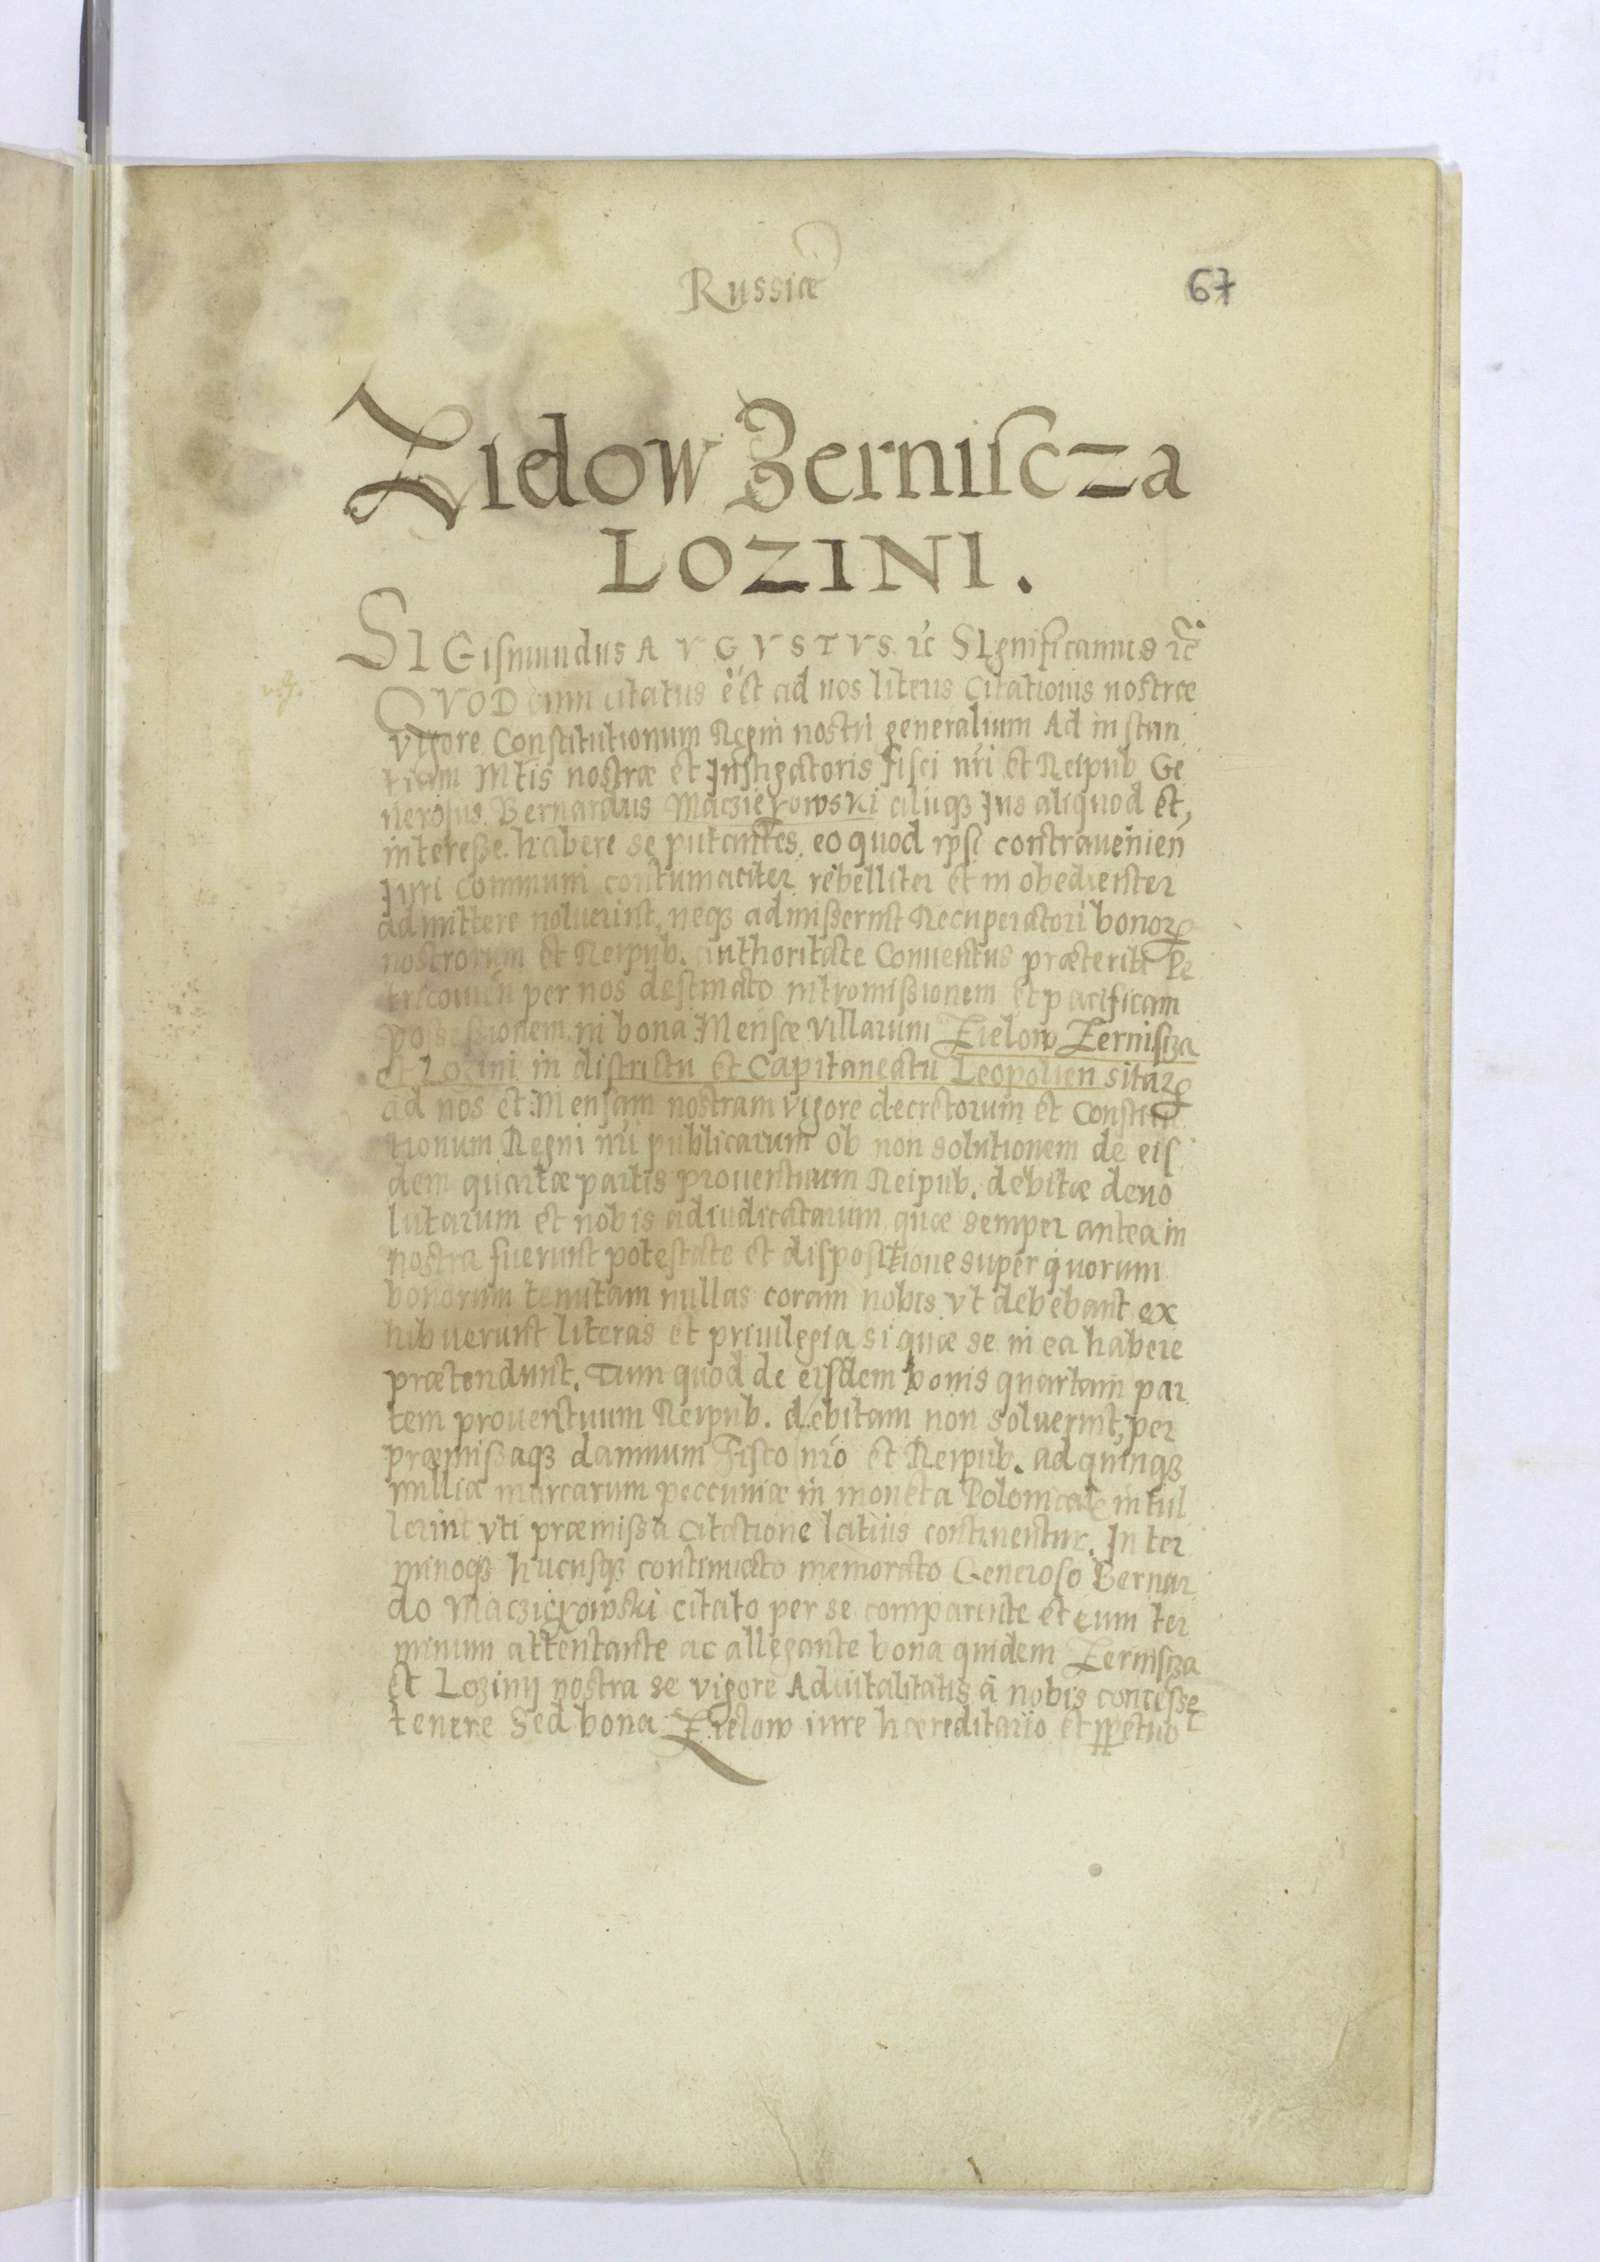 Russiæ
67
Zidow Zerniscza
LOZINI.
SIGismundus AVGVSTVS ec̃ SIgnificamus ec̃
QVOD cum citatus e'st ad nos literis Citationis nostræ
vigore Constitutionum Regni nostri generalium Ad instan
tiam Mtis nostræ et Instigatoris fisci nr̃i et Reipub. Ge
nerosus Bernardus Macziekowski aliiqȝ Ius aliquod et,
interesse habere se putantes. eo quod ip̃si contravenien̄
Iuri Communi contumaciter rebelliter et inobedienter
admittere noluerint, neqȝ admisserint Recuperatori bonorꝝ
nostrorum et Reipub. authoritate Conventus præteriti Pe
tricouien̄ per nos destinato intromissionem et pacificam
possessionem in bona Mensæ villarum Zielow Zernisza
et Lozini in districtu et Capitaneatu Leopolien sitarꝝ
ad nos et Mensam nostram vigore decretorum et Constitu
tionum Regni nr̃i publicarum Ob non solutionem de eis
dem quartæ partis prouentuum Reipub. debitæ deuo
lutarum et nobis adiudicatarum quæ semper antea in
nostra fuerunt potestate et dispositione super quorum
bonorum tenutam nullas coram nobis vt debebant ex
hibuerunt literas et priuilegia si quæ se in ea habere
prætendunt. Tum quod de eisdem bonis quartam par
tem prouentuum Reipub. debitam non soluerint, per
præmissaqȝ damnum Fisco nr̃o et Reipub. ad quinqȝ
milliæ marcarum peccuniæ in moneta Polonicalẹ intul
lerint vti præmissa Citatione latius continentur. In ter
minoqȝ hucusqȝ continuato memorato Generoso Bernar
do Macziekowski citato per se comparente et eum ter
minum attentante ac allegante bona quidem Zernisza
et Lozinij nostra se vigore Aduitalitatis â nobis concessẹ
tenere Sed bona Zielow iure hæreditario et ꝑpetuo